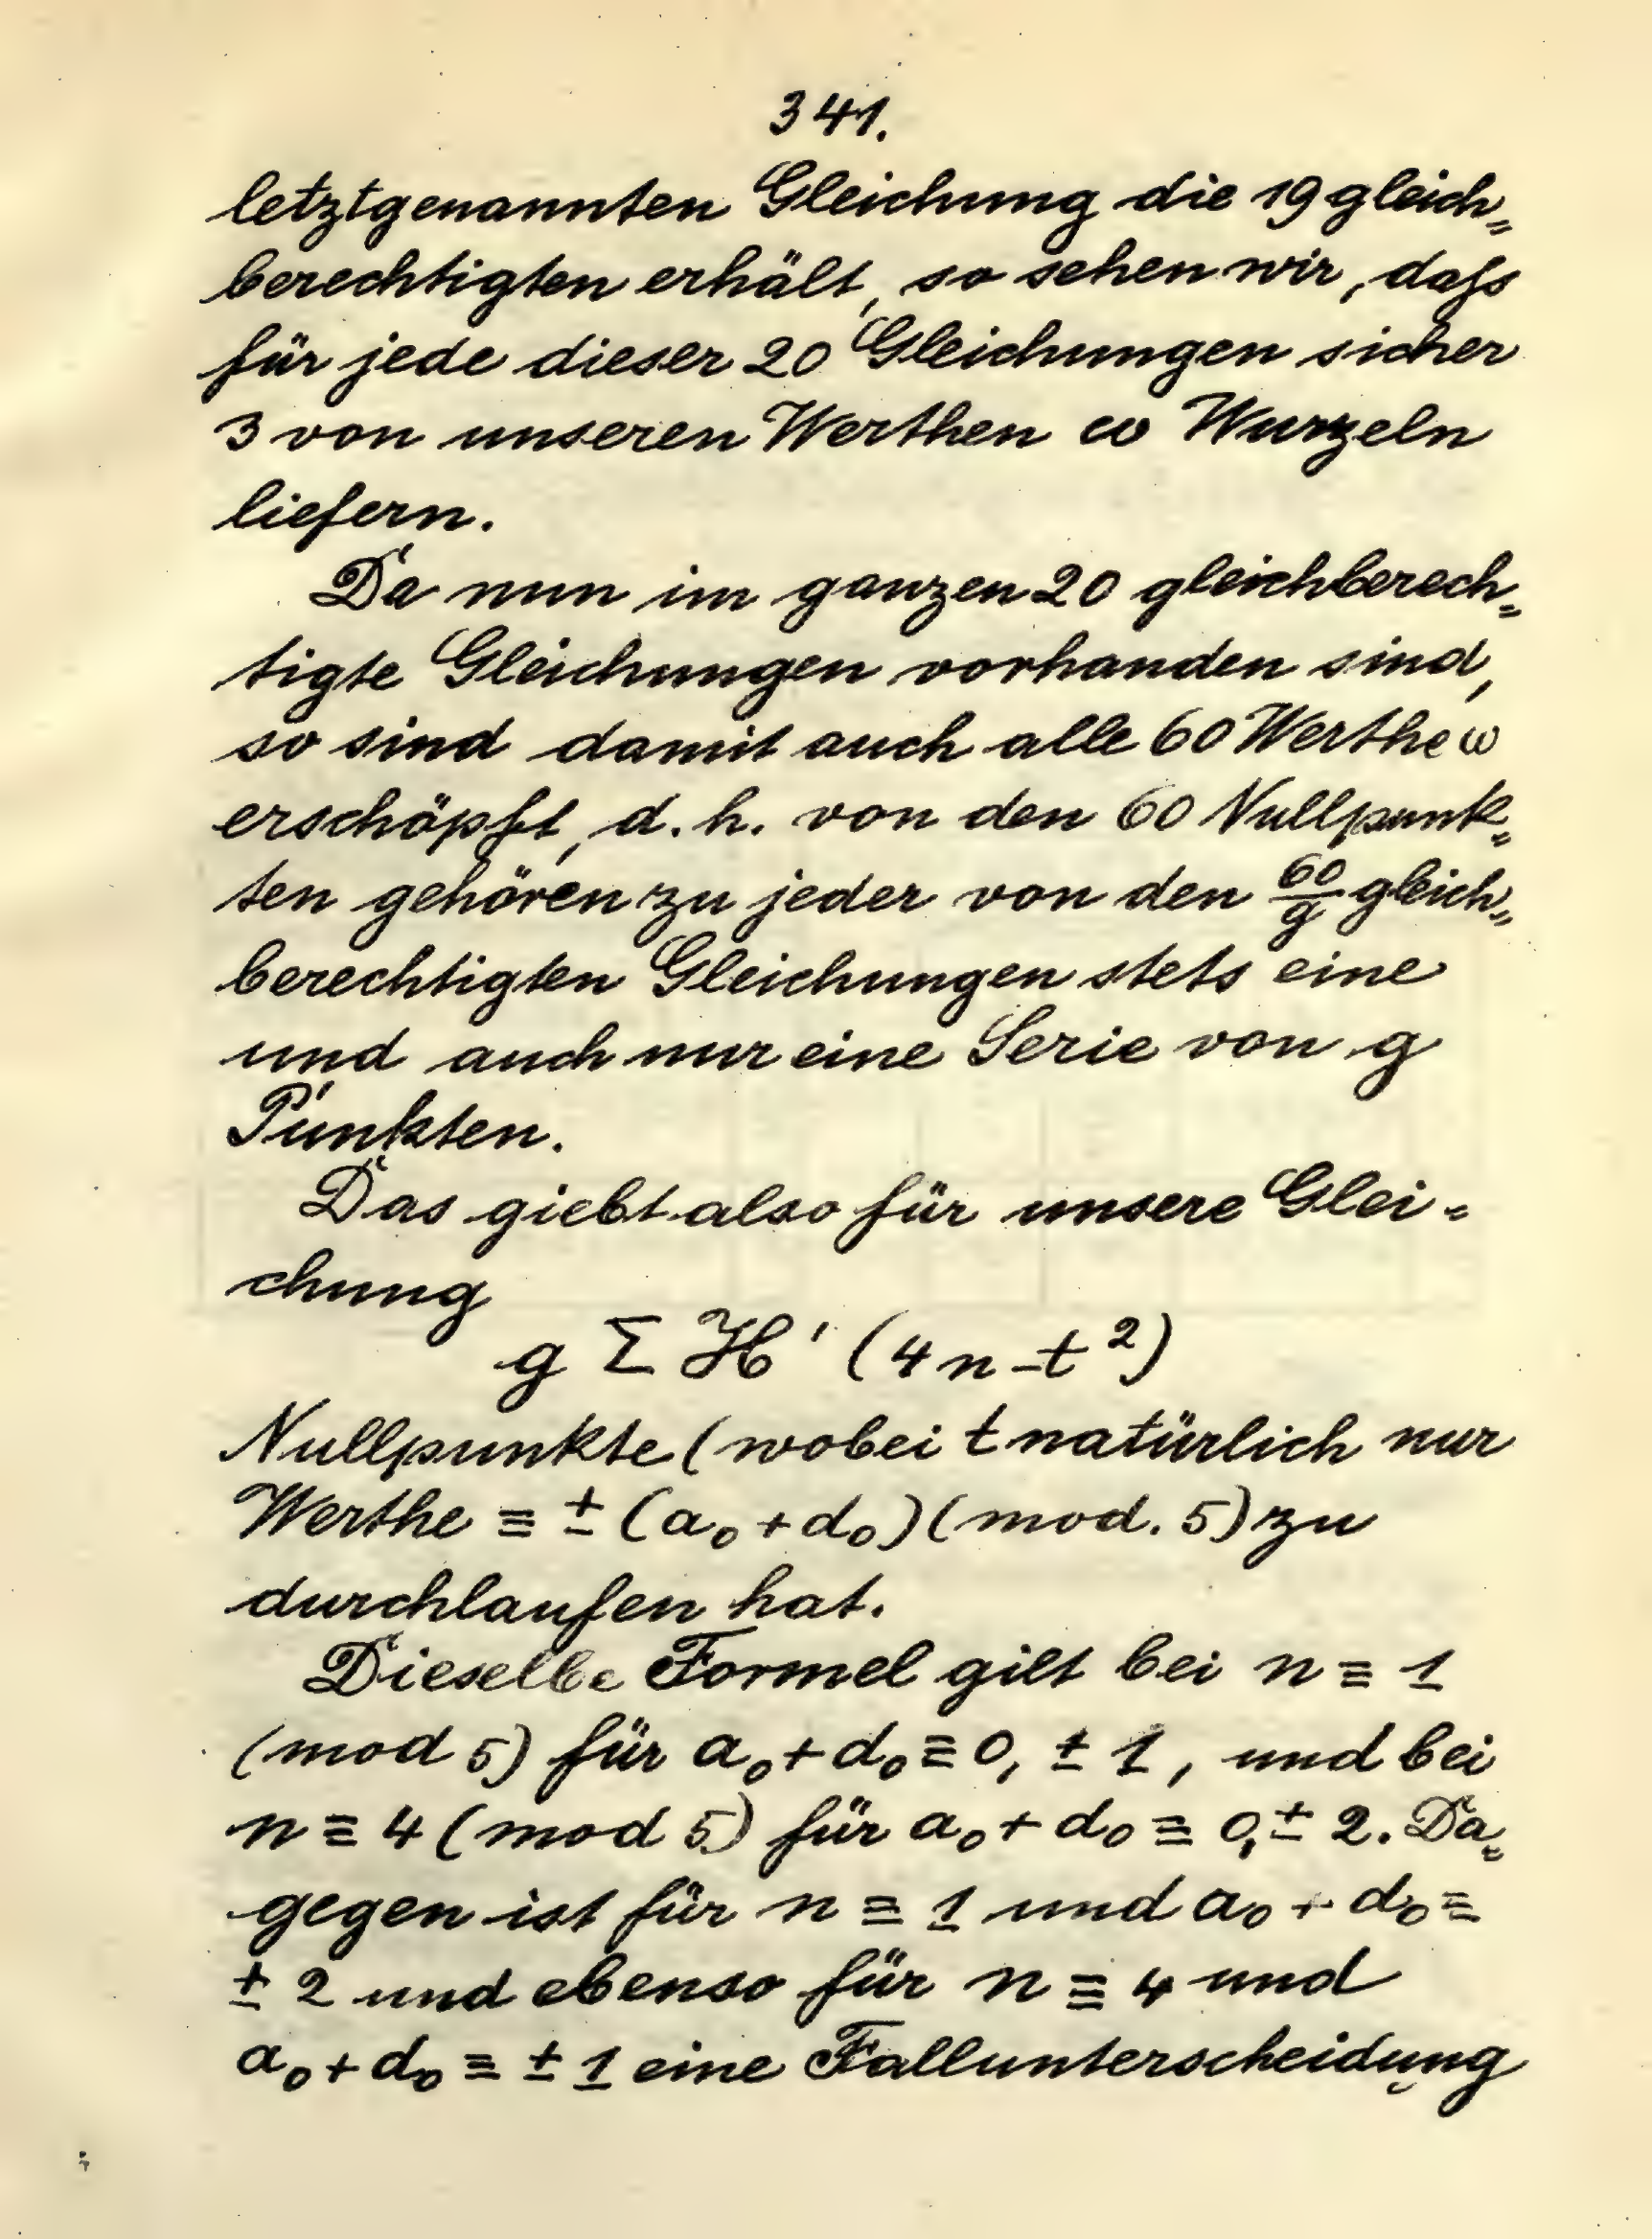 341.
letztgenannten Gleichung die 19 gleich=
berechtigten erhält, so sehen wir, daſs
für jede dieser 20 Gleichungen sicher
3 von unseren Werthen ω Wurzeln
liefern.
Da nun im ganzen 20 gleichberech=
tigte Gleichungen vorhanden sind,
so sind damit auch alle 60 Werthe ω
erschöpft, d. h. von den 60 Nullpunk=
ten gehören zu jeder von den 60/g gleich=
berechtigten Gleichungen stets eine
und auch nur eine Serie von g
Punkten.
Das giebt also für unsere Glei=
chung
g Σ H' (4n-t²)
Nullpunkte (wobei t natürlich nur
Werthe ≡ ± (a₀+d₀) (mod. 5) zu
durchlaufen hat.
Dieselbe Formel gilt bei n ≡ 1
(mod 5) für a₀+d₀ ≡ 0, ± 1, und bei
n ≡ 4 (mod 5) für a₀+d₀ ≡ 0, ± 2. Da=
gegen ist für n ≡ 1 und a₀+d₀ =
± 2 und ebenso für n ≡ 4 und
a₀+d₀ ≡ ± 1 eine Fallunterscheidung